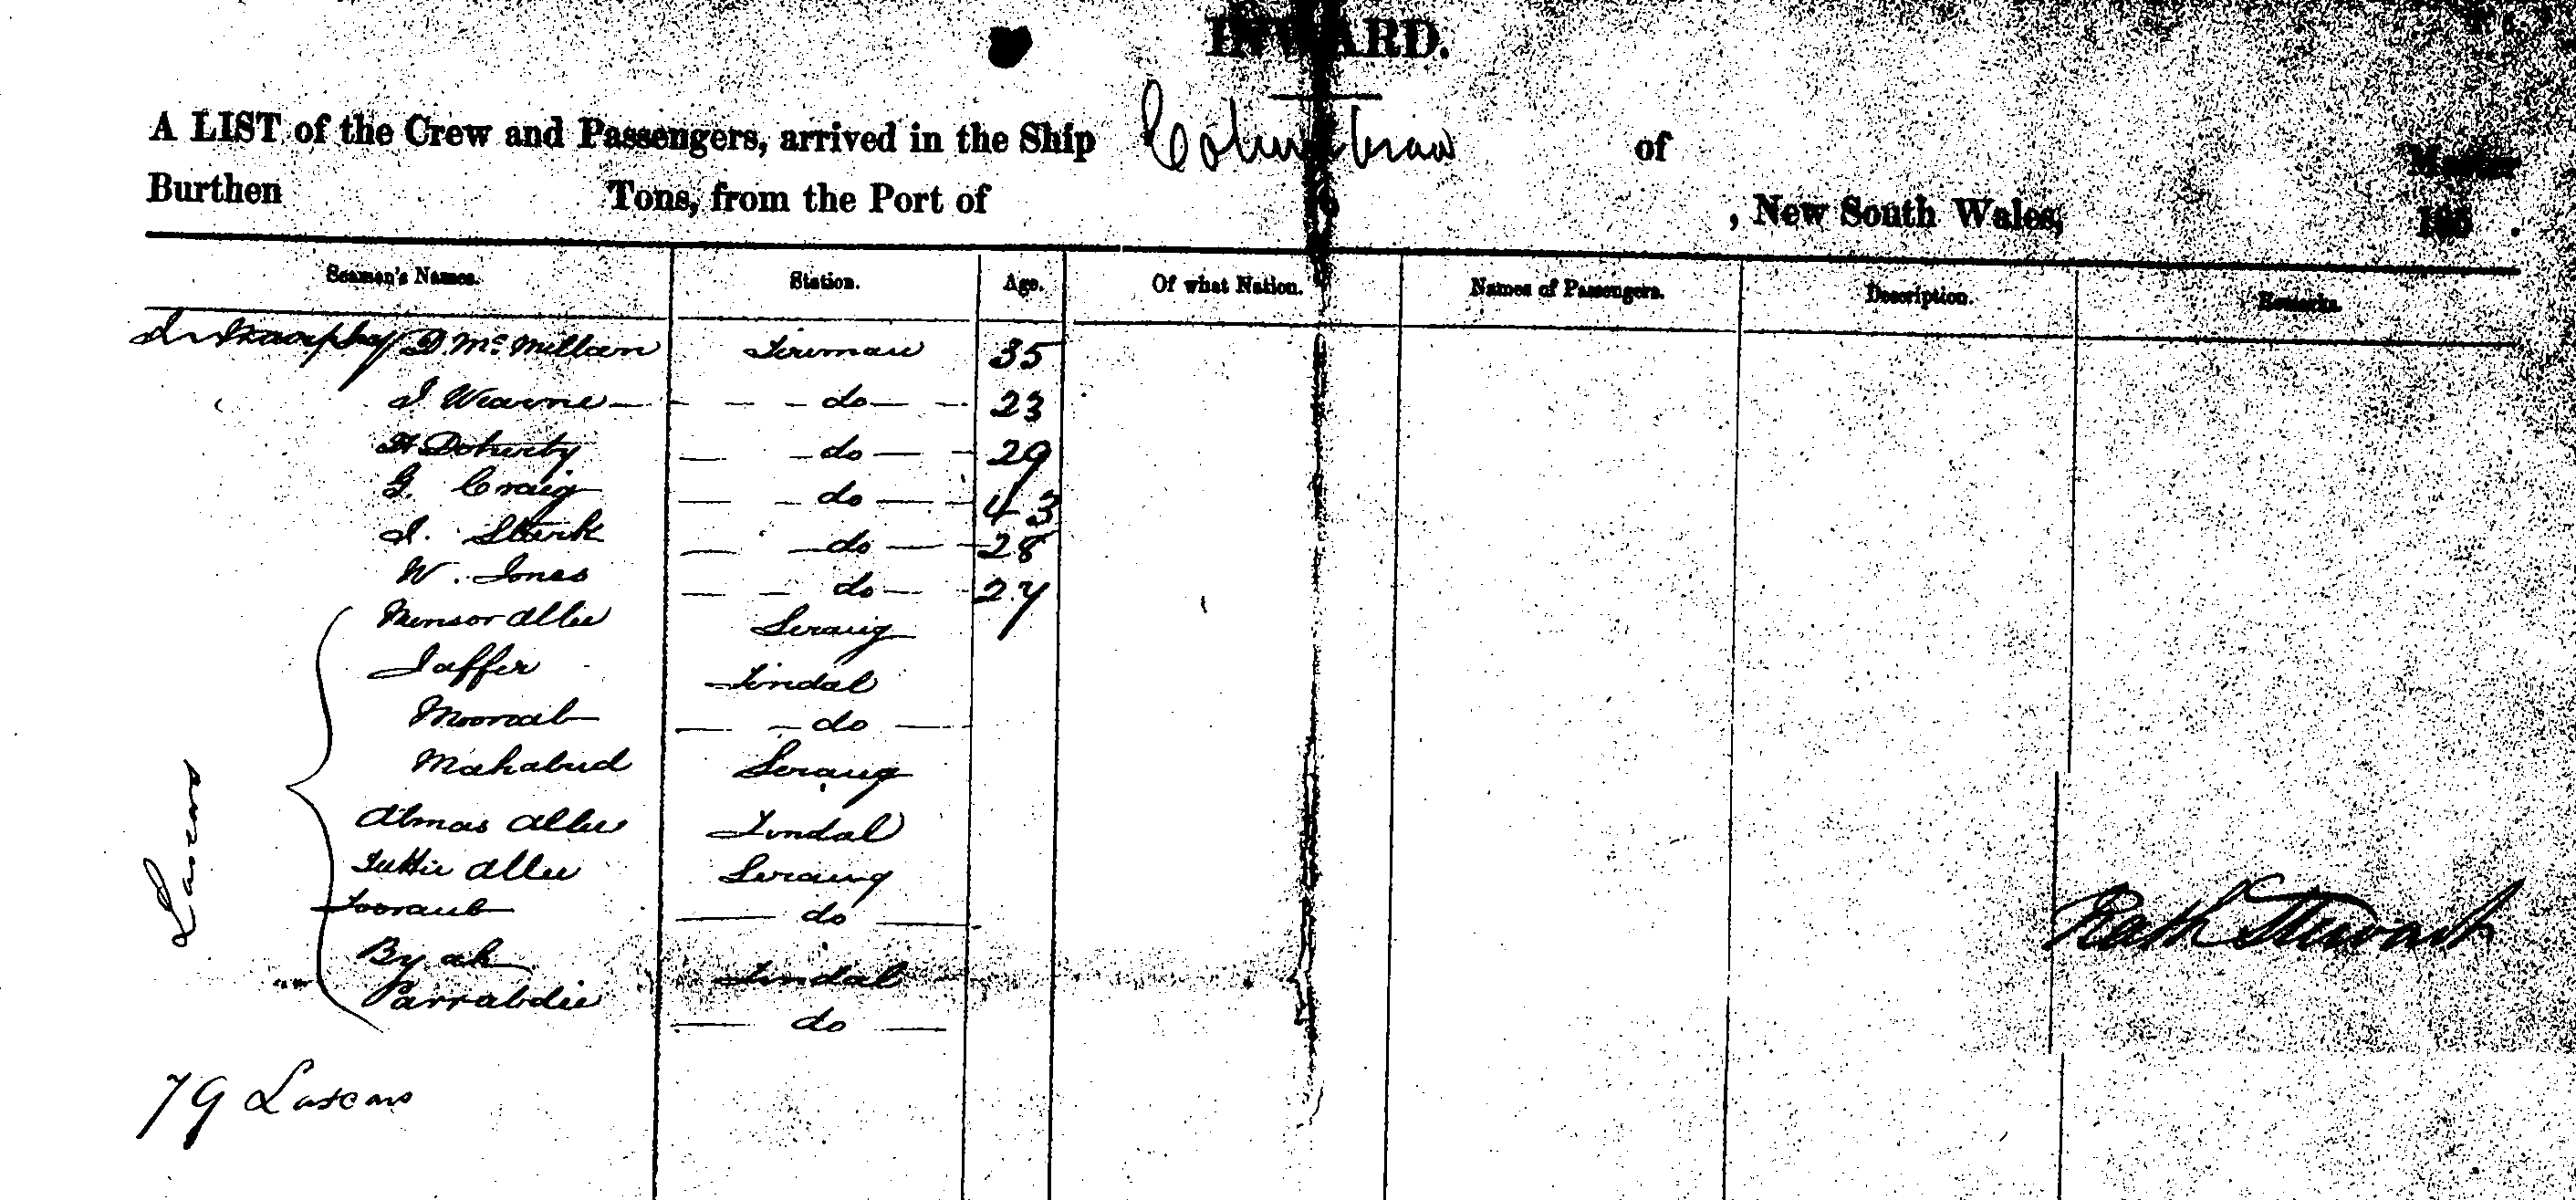 INWARD.
A LIST of the Crew and Passengers, arrived in the Ship of Master
Burthen Tons, from the Port of to , New South Wales, 185 .
Seamen's Names. Station. Age. Of what Nation. Names of Passengers. Description. Remarks.
D. McMillan Fireman 35
J Wearne do 23
H Doherty do 29
G. Craig do 43
J. Sterk do 28
W. Jones do 27
Munsor Allee Serang
Jaffer Tindal
Mooraab do
Mahabud Serang
Almas Allee Tindal
Allee Serang
Tooraub do
By ah Tindal
Parrabdie do
Lascars
79 Lascars
Stewart